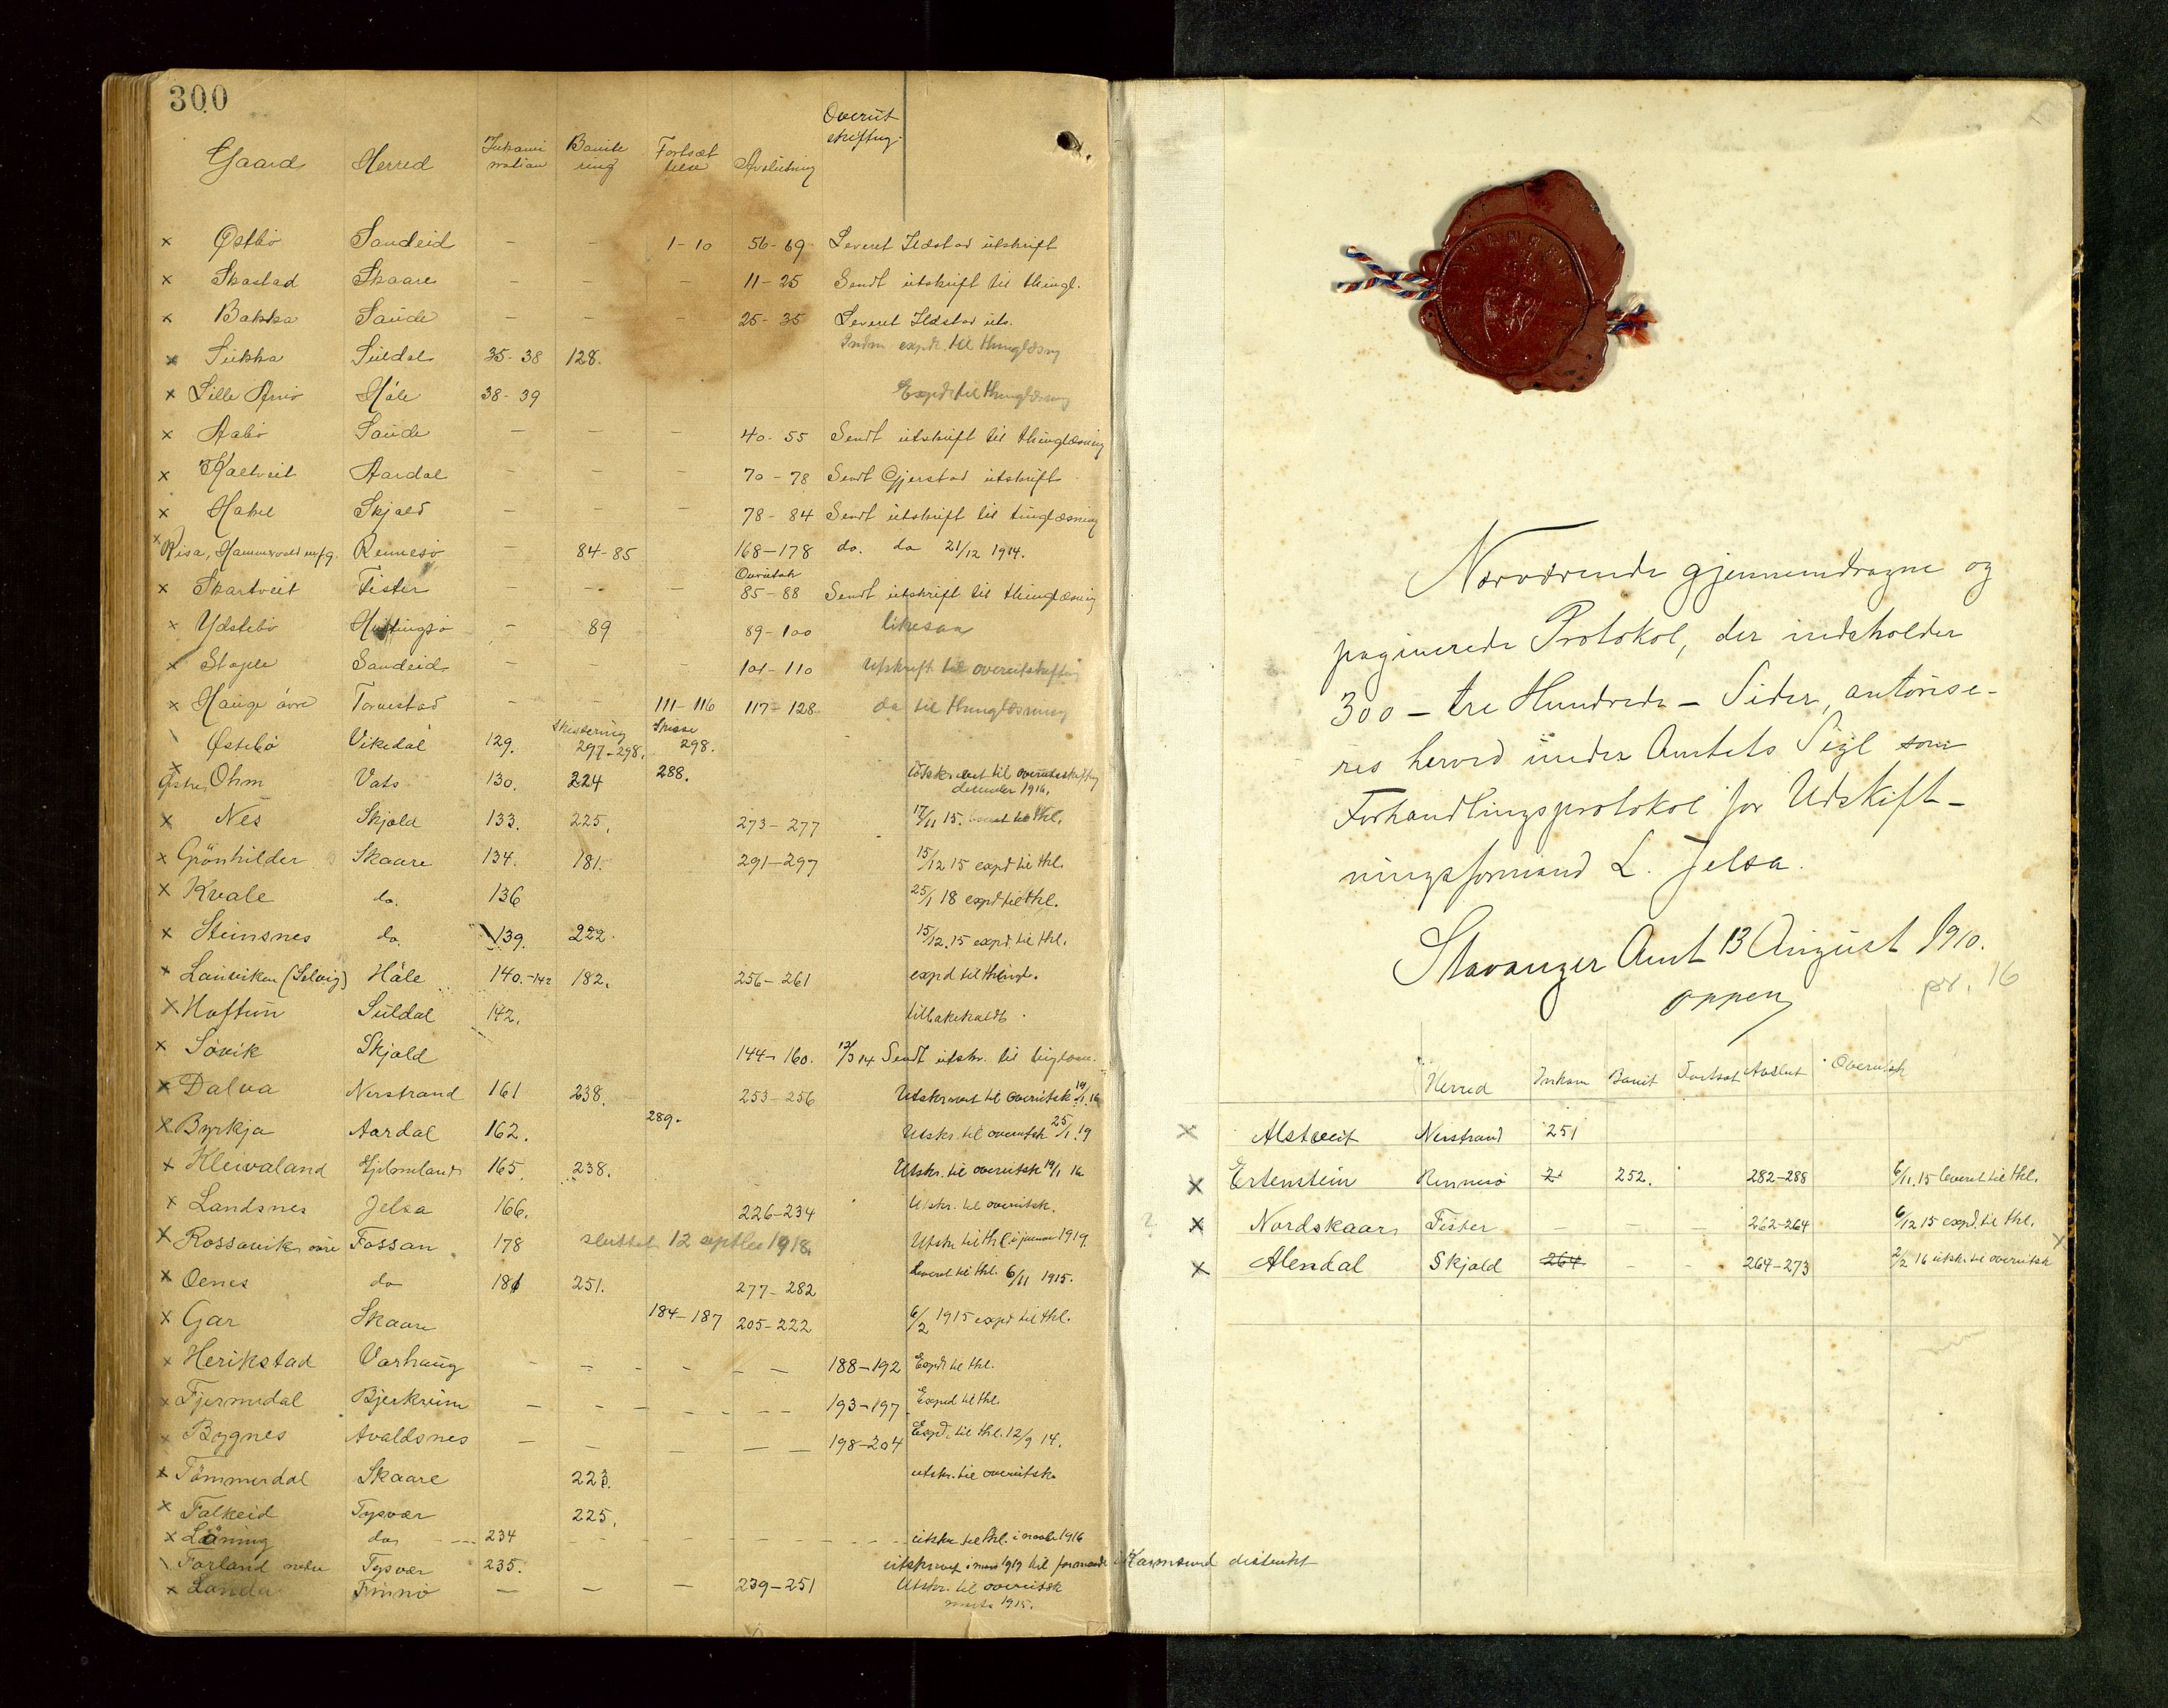 300
Gaard Herred Inkami nation Bonite ring Fortsæt telse Avslutning Overut skiftng.
× Østbø Sandeid - - 1-10 56-69 Leveret Ildstad utskrift
× Skastad Skaare - - - 11-25 Sendt utskrift til thingl.
× Bakka Saude - - - 25-35 Leveret Ildstad uts.
× Sukka Suldal 35-38 128. expd. til thinglæsng
× Lille Hâle 38-39 Expd til thinglæsning
× Aabø Saude - - - 40-55 Sendt utskrift til thinglæsning
× Kaltveit Aardal - - - 70-78 Sendt Gjerstad utskrift
× Hakel Skjold - - - 78-84 Sendt utskrift til tinglæsning
× Risa, m.fg. Rennesø - 84-85 168-178 do. do 21/12 1914.
× Skartveit Fister - - - Overutsk 85-88 Sendt utskrift til thinglæsning
× Ydstebø - 89 89-100 likesaa
× Stople Sandeid - - - 101-110 Utskrift til overutskiftn
× Hauge övre Torvestad - - 111-116 117-128 do til thinglæsning
\ Østebø Vikedal 129. 297-298. Skisse 298.
× Østre Ohm Vats 130. 224 288. Utskrevet til overutskiftng december 1916.
× Nes Skjold 133. 225. 273-277 17/11 15. leveret til thl.
× Grönhilder Skaare 134. 181. 291-297 15/12 15 expd til thl.
× Kvale do. 136 25/1 18 expd til thl.
× Steinsnes do. 139. 222. 15/12.15 expd. til thl.
× Lauviken (Selvig) Hâle 140.-142 182. 256-261 expd til thingl.
× Hoftun Suldal 142. tilbakekaldt.
× Søvik Skjold 144-160. 12/3 14 Sendt utskr. til tinglæsn.
× Dalva Nerstrand 161 238. 253-256 Utskrevet til overutsk 19/1.16
× Byrkja Aardal 162. 289. Utskr. til overutsk 25/1.19
× Kleivaland Hjelmeland 165. 238. Utskr. til overutsk 19/1 16
× Landsnes Jelsa 166. 226-234 Utskr. til overutsk.
× Rossavik øvre Fossan 178 sluttet 12 septber 1918. Utskr til thl i januar 1919.
× Oenes do 181 251. 277-282 Leveret til thl. 6/11 1915.
× Gar Skaare 184-187 205-222 6/2 1915 expd til thl.
× Herikstad Varhaug - - - - - 188-192 Expd til thl.
× Fjermedal Bjerkreim - - - - - 193-197. Exped til thl.
× Bygnes Avaldsnes - - - - - 198-204 Expd. til thl. 12/9 14.
× Tømmerdal Skaare 223. utskr. til overutsk.
× Falkeid Tysvær 225.
× Løning do 234 - - - - utskr til thl. i novbr 1916
\ Førland nedre Tysvær 235. utskrevet i mars 1919 til formand i Karmsund distrikt
× Landa Finnø - - - 239-251 Utskr. til overutsk marts 1915.
Nærværende gjennemdragne og
paginerede Protokol, der indeholder
300 - tre Hundrede - Sider, autorise-
res herved under Amtets Segl som
Forhandlingsprotokol for Udskift-
ningsformand L. Jelsa.
Stavanger Amt 13 August 1910.
oppen
pr. 16
Herred Inkam Bonit Fortsat Avslut Overutsk
× Alstveit Nerstrand 251
× Ertenstein Rennesø 2 252. 282-288 6/11.15 leveret til thl.
2 × Nordskaar Fister - - - 262-264 6/12 15 expd. til thl.
× Alendal Skjold 264 - - 264-273 2/2 16 utsk. til overutsk ×